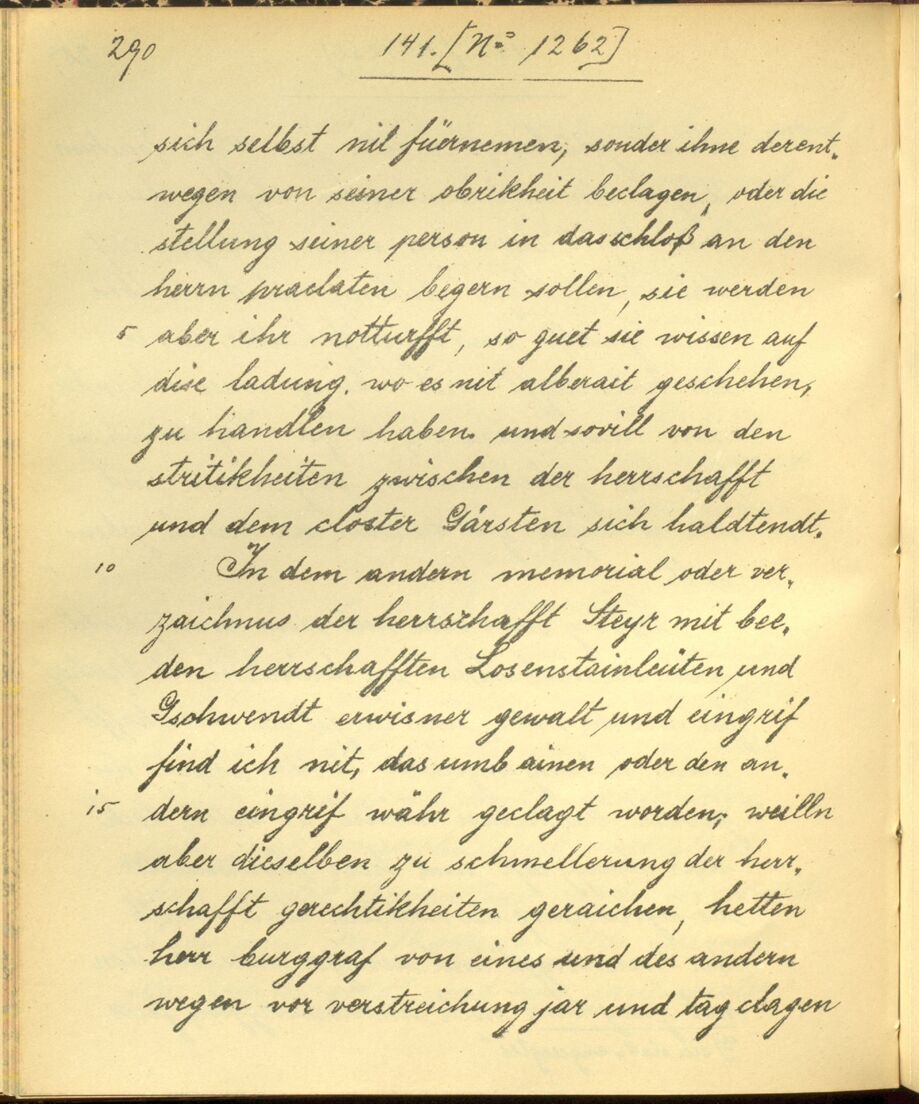 290
141. [No 1262]
sich selbst nit füernemen, sonder ihne derent-
wegen von seiner obrikheit beclagen, oder die
stellung seiner person in das schloß an den
herrn praelaten begern sollen, sie werden
5 aber ihr notturfft, so guet sie wissen auf
dise ladung, wo es nit alberait geschehen,
zu handlen haben. und sovill von den
stritikheiten zwischen der herrschafft
und dem closter Gärsten sich haldtendt.
10 In dem andern memorial oder ver-
zaichnus der herrschafft Steyr mit bee-
den herrschafften Losenstainleüten und
Gschwendt erwisner gewalt und eingrif
find ich nit, das umb ainen oder den an-
15 dern eingrif währ geclagt worden; weilln
aber dieselben zu schmellerung der herr-
schafft gerechtikheiten geraichen, hetten
herr burggraf von eines und des andern
wegen vor verstreichung jar und tag clagen